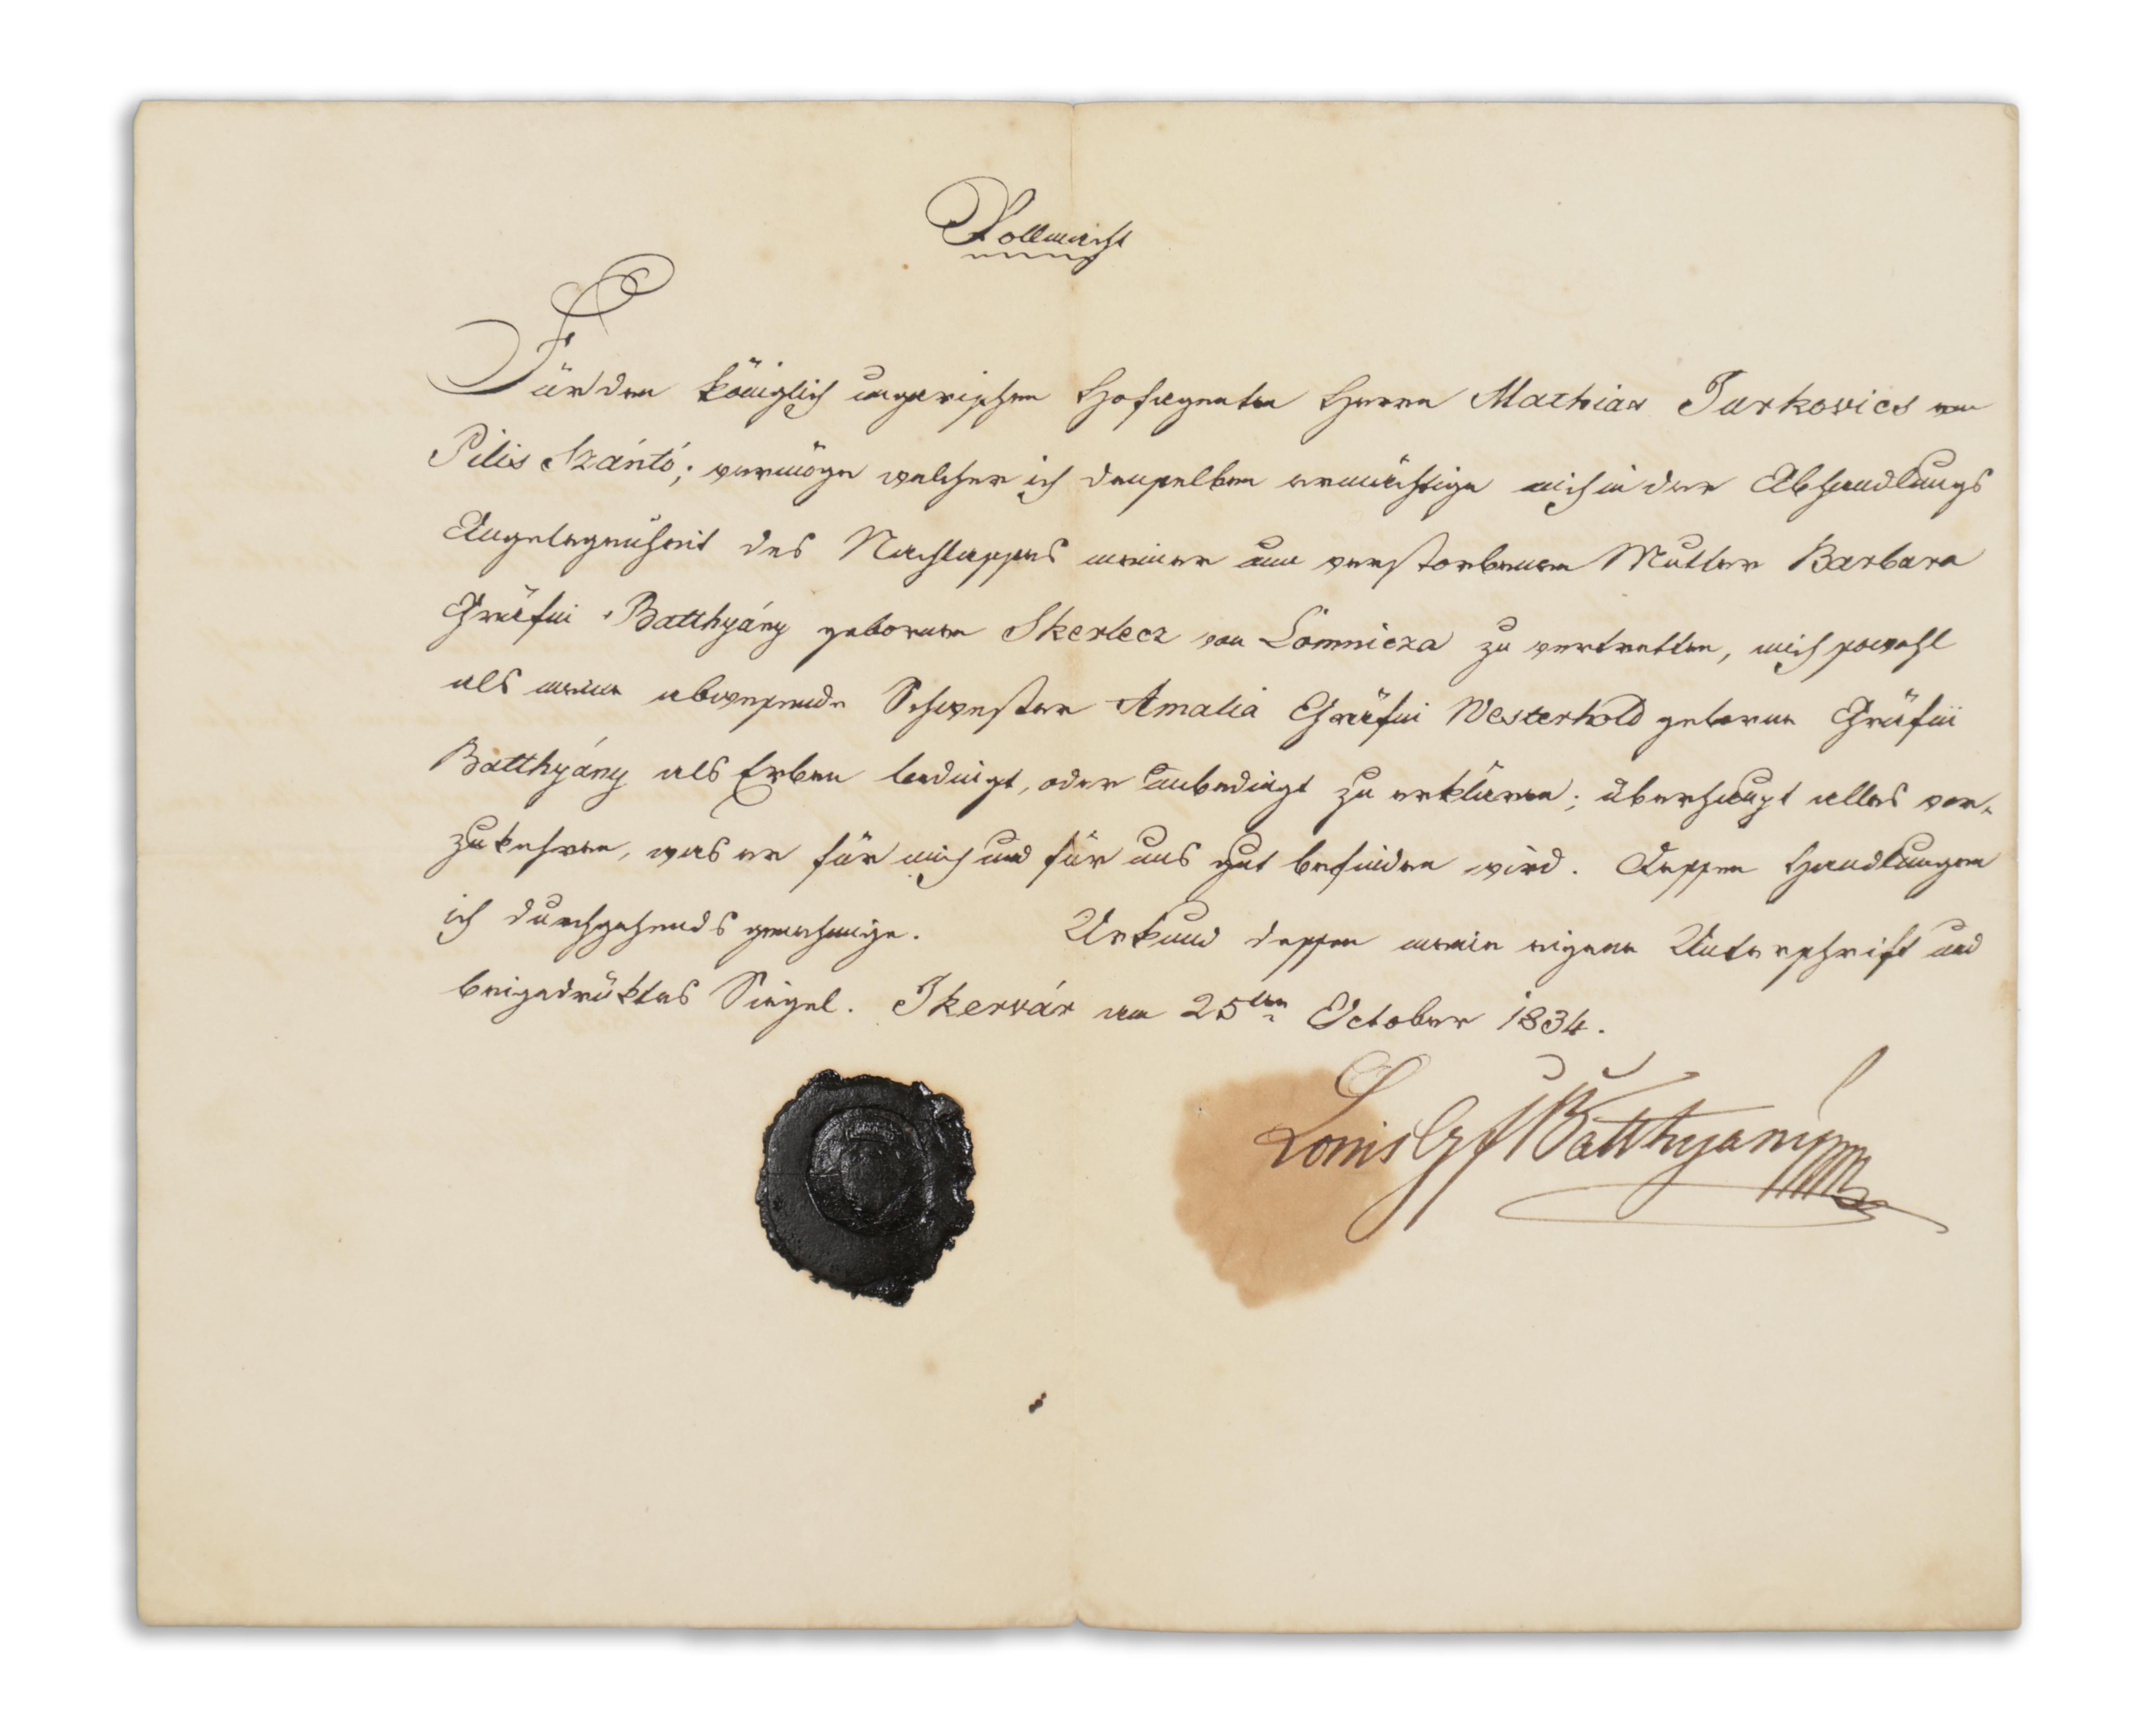 Vollmacht
Für den königlich ungarischen Hofagenten Herrn Mathias Jurkovics von
Pilis Szántó; vermöge welcher ich denselben ermächtige mich in der Abhandlungs
Angelegenheit des Nachlasses meiner nun verstorbenen Mutter Barbara
Gräfin Batthyány geborenen Skerlecz von Lomnicza zu vertretten, mich sowohl
als meine abwesende Schwester Amalia Gräfin Westerhold geborne Gräfin
Batthyány als Erben bedingt, oder unbedingt zu erklären; überhaupt alles vor-
zukehren, was er für mich und für uns gut befinden wird. Dessen Handlungen
ich durchgehends genehmige. Urkund dessen meine eigene Unterschrift und
beigedrüktes Siegel. Ikervár am 25ten October 1834.
Louis Gf Batthyány